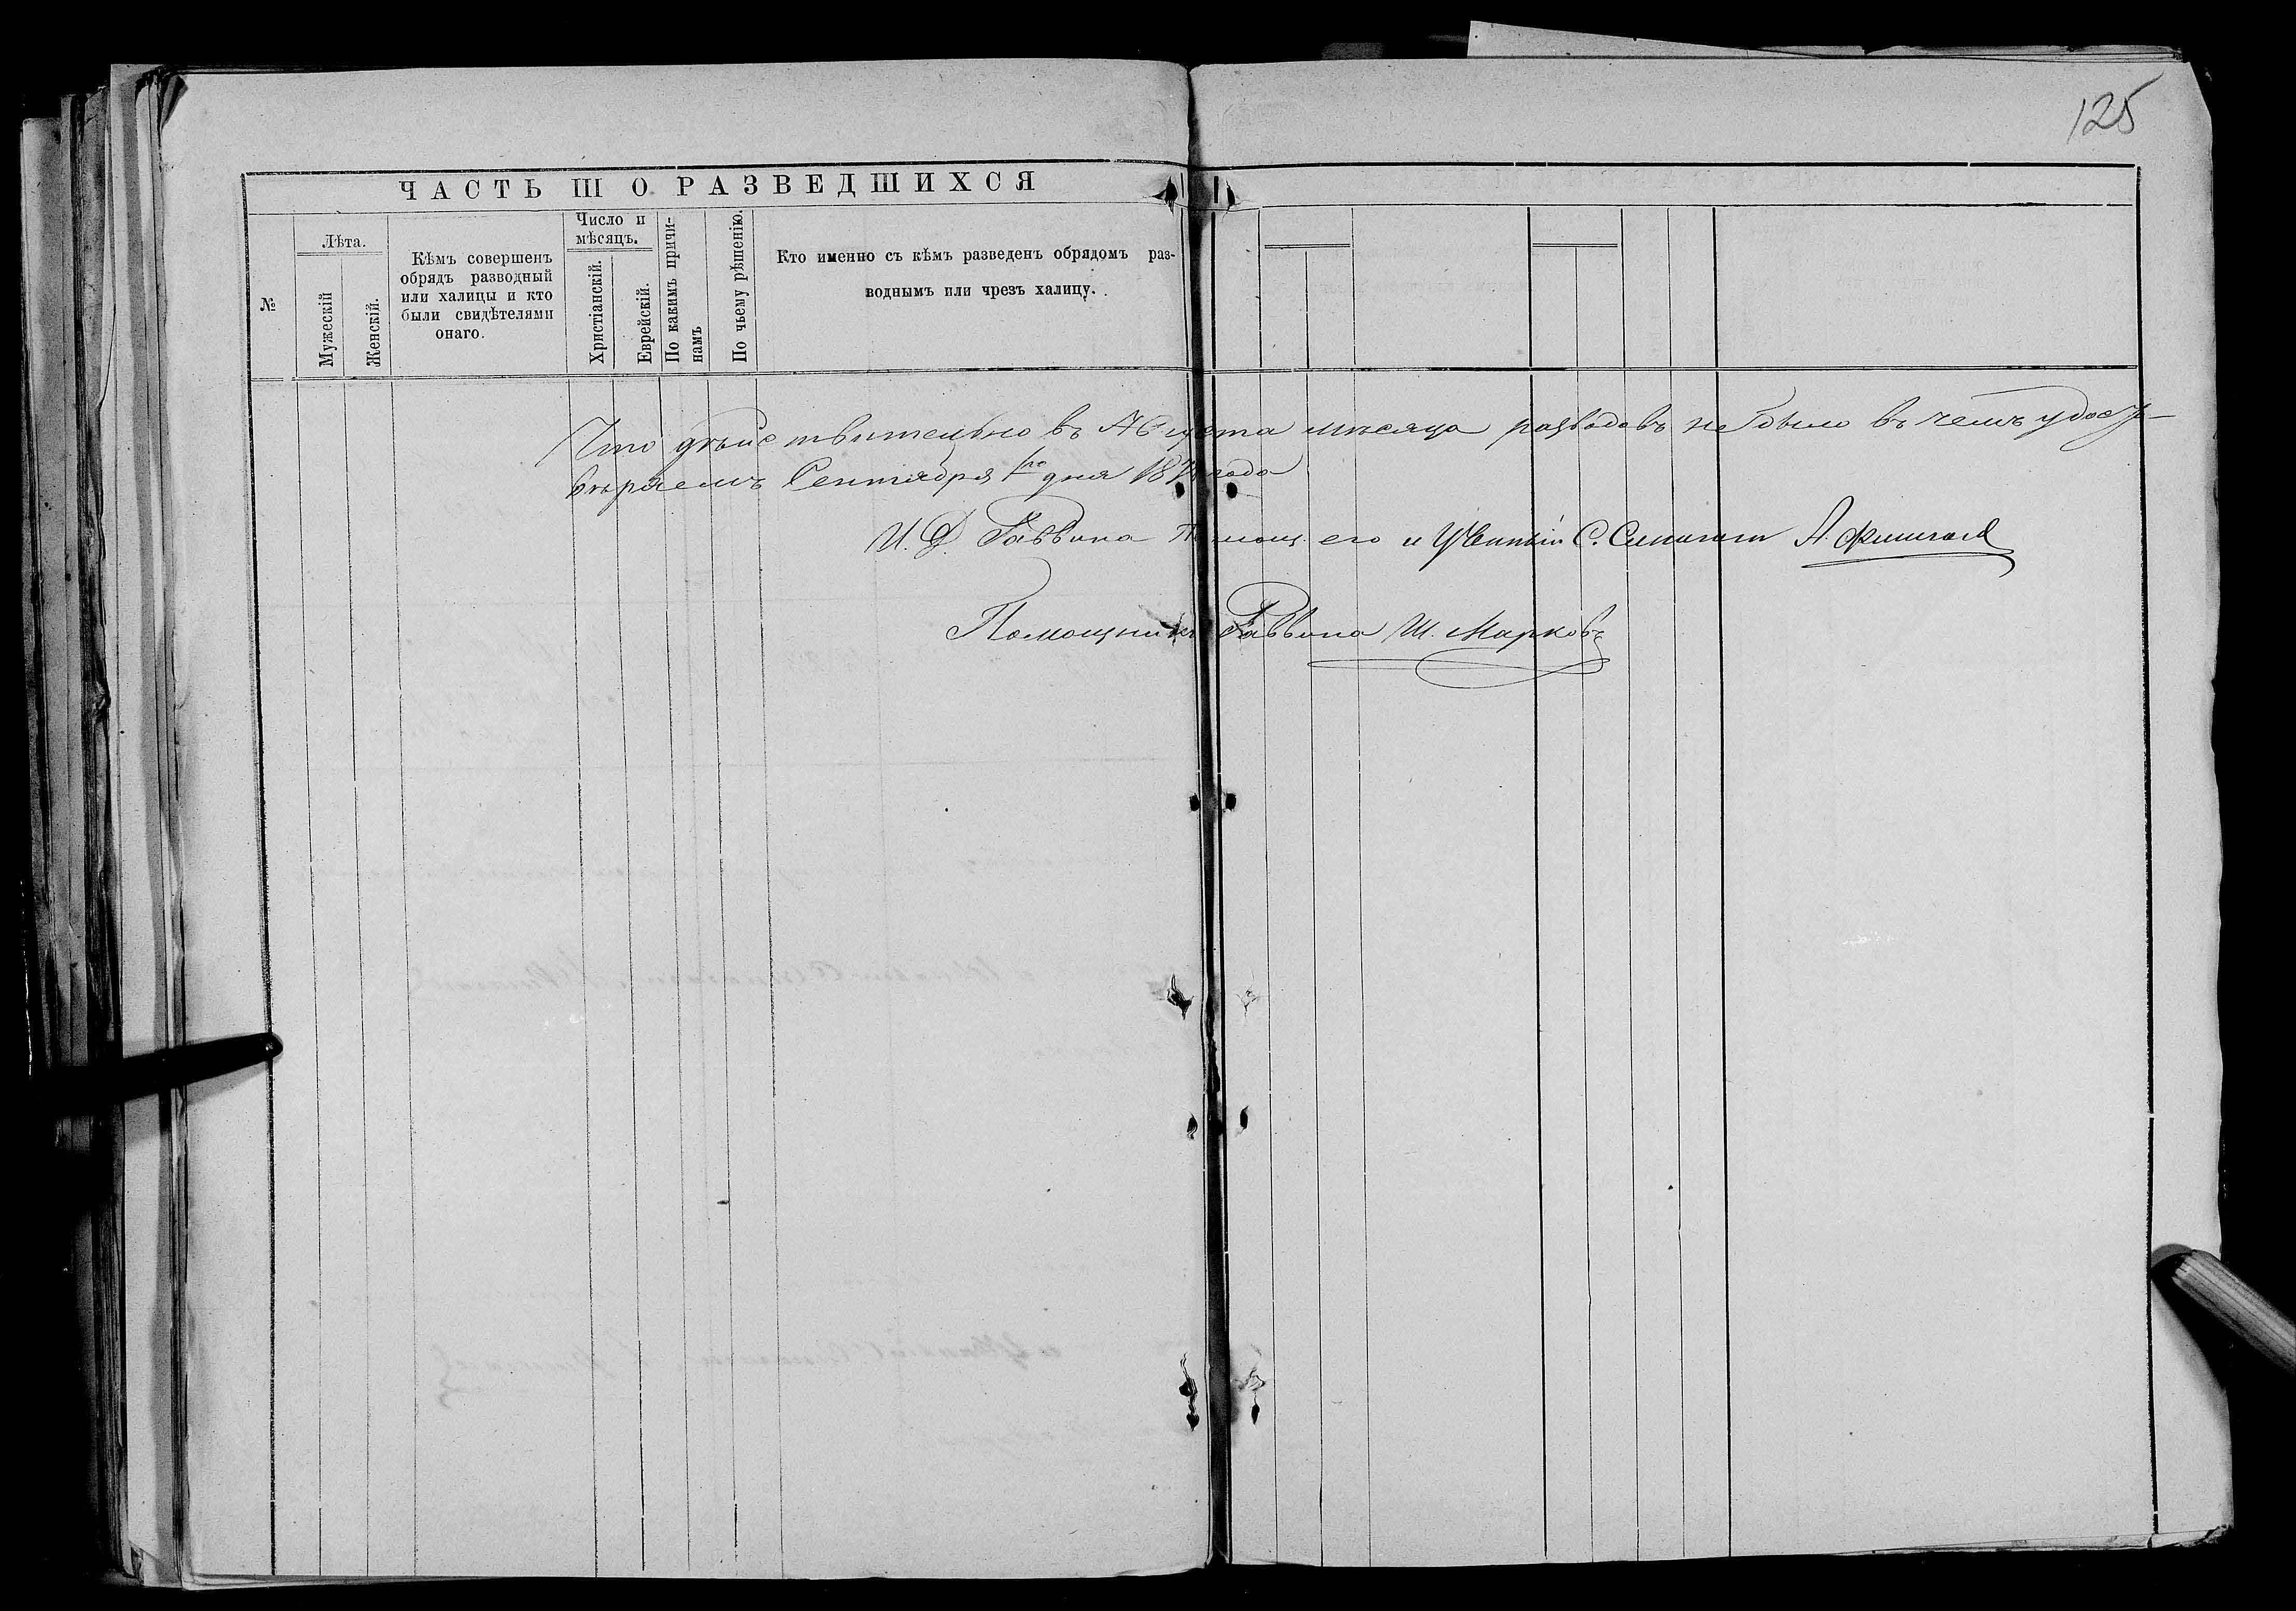 125
ЧАСТЬ III О РАЗВЕДШИХСЯ
№
Лѣта.
Мужескій
Женскій.
Кѣмъ совершенъ
обрядъ разводный
или халицы и кто
были свидѣтелями
онаго.
Число и
мѣсяцъ.
Христіанскій.
Еврейскій.
По какимъ причи-
намъ
По чьему рѣшенію.
Кто именно съ кѣмъ разведенъ обрядомъ раз-
воднымъ или чрезъ халицу.
Что дѣйствительно въ Августа мѣсяца разводовъ не было въ чемъ удосто-
вѣряемъ Сентября 1го дня года
И. Д. Раввина его и Ученый С.
Помощникъ Раввина Ш. Марковъ